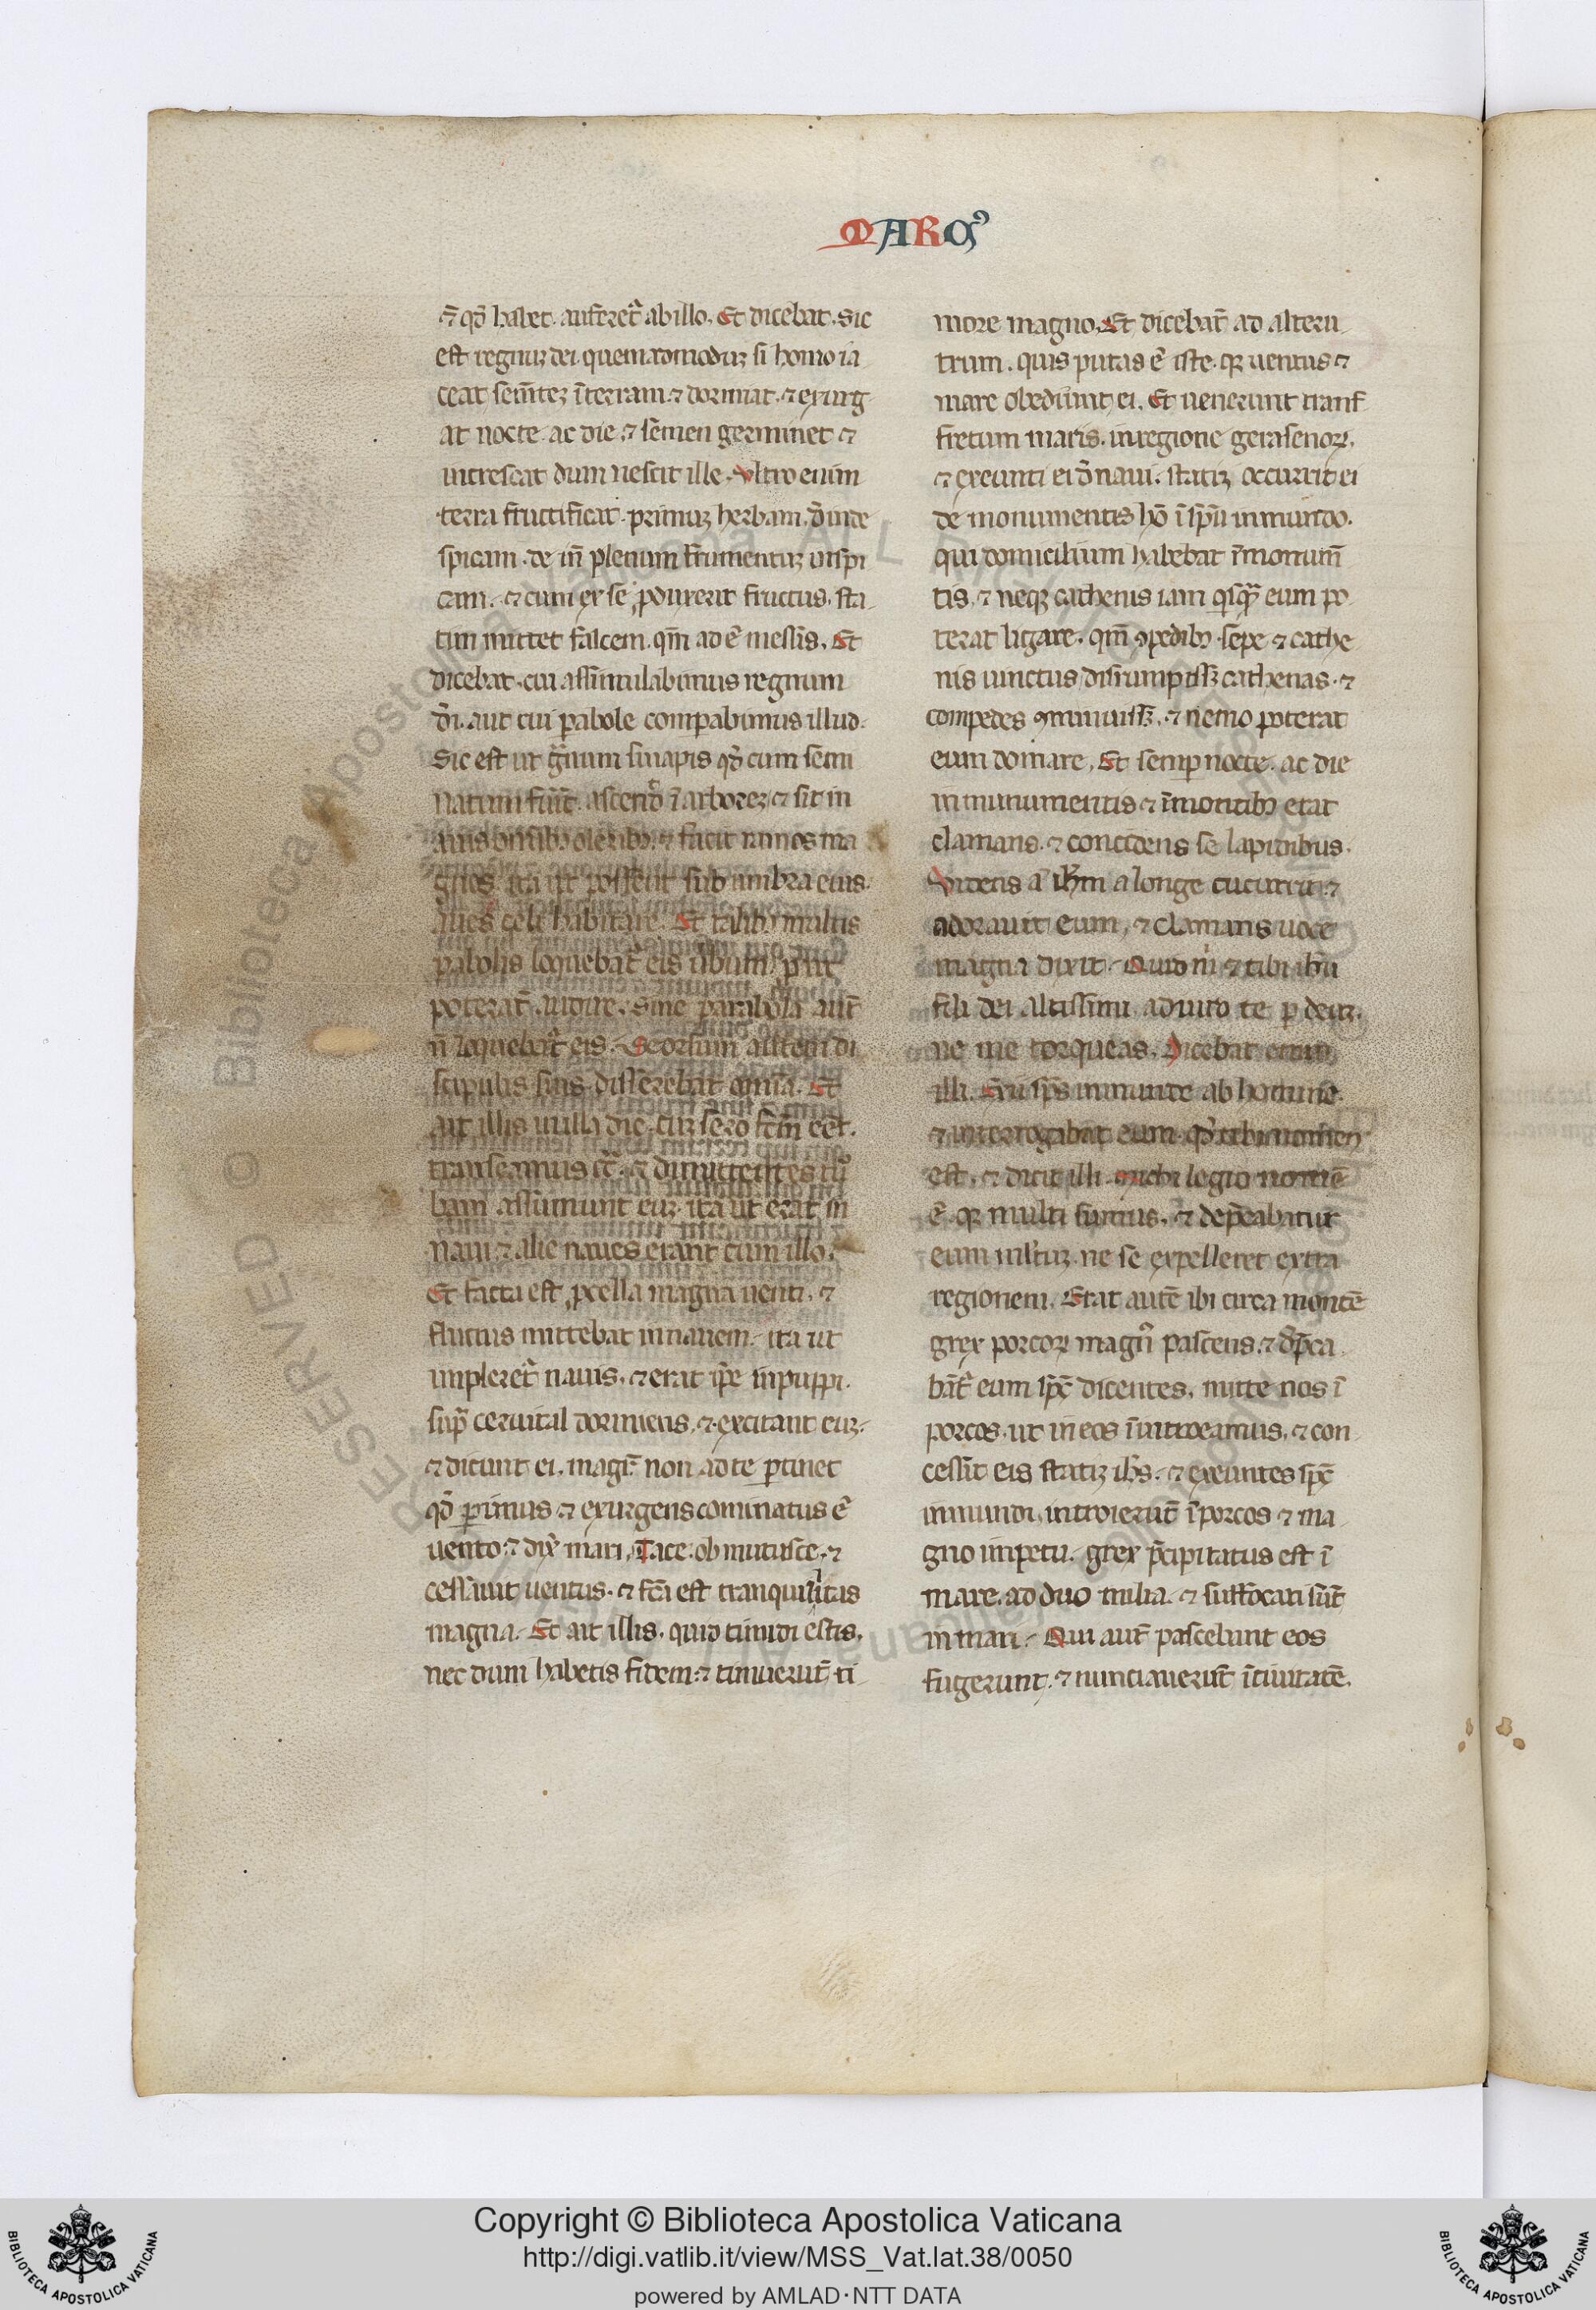 MARCꝰ
⁊ qď habet. auferet᷑ ab illo. Et dicebat. Sic
est regnuꝫ dei quemadmoduꝫ si homo ia
ceat sem̄teꝫ ī terram ⁊ dormiat. ⁊ exurg
at nocte ac die ⁊ semen germinet ⁊
increscat dum nescit ille. Vltro enim
terra fructificat. primuꝫ herbam. d̄inde
spicam. de in̄ plenum frumentuꝫ in spi
cam. ⁊ cum ex se ꝓduxerit fructus. sta
tim mittet falcem. qm̄ ad ē messis. Et
dicebat. cui assimulabimus regnum
d̄i. aut cui ꝑabole comparabimus illud.
Sic est ut g̃num sinapis qď cum semi
natum fūit. ascend̄ ī arboreꝫ ⁊ fit in
aius om̄ibꝰ oleribꝰ. ⁊ facit ramos ma
gnos. ita ut possent sub umbra eius.
aues celi habitare. Et talibꝰ multis
ꝑabolis loquebat᷑ eis ūbum. ꝓ ut
poterāt audire. Sine parabola aut̄
n̄ loquebat᷑ eis. Seorsum autem di
scipulis suis disserebat om̄ia. Et
ait illis in illa die. cuꝫ sero fc̄m eēt.
transeamus cō. ⁊ dimittentes tū
bam assumunt euꝫ. ita ut erat in
naui ⁊ alie naues erant cum illo.
Et facta est ꝓcella magna uenti. ⁊
fluctus mittebat in nauem. ita ut
impleret᷑ nauis. ⁊ erat ip̄e in puppi.
sup̄ ceruical dormiens. ⁊ excitant euꝫ.
⁊ dicunt ei. magr̄ non ad te ꝑtinet
qď ꝑimus ⁊ exurgens cominatus ē
uento. ⁊ dix̄ mari. Tace. ob mutesce. ⁊
cessauit uentus. ⁊ fc̄a est tranquillitas
magna. Et ait illis. quid timidi estis.
nec dum habetis fidem. ⁊ timuerūt ti
more magno. Et dicebāt ad alteru
trum. quis putas ē iste. qꝫ uentus ⁊
mare obediunt ei. Et uenerunt tranſ
fretum maris. in regione gerasenoꝝ.
⁊ exeunti ei d̄ naui. statiꝫ occurrit ei
de monumentis hō ī sp̄u inmundo.
qui domicilium habebat ī monum̄
tis. ⁊ neqꝫ cathenis iam qⁱsqᷓ eum po
terat ligare. qm̄ ꝯpedibꝰ sepe ⁊ cathe
nis uinctus disrumpissꝫ cathenas. ⁊
compedes ꝯminuissꝫ. ⁊ nemo poterat
eum domare. Et semp nocte. ac die
in munumentis ⁊ ī montibꝰ erat
clamans. ⁊ concidens se lapidibus.
Videns ā ihm̄ a longe cucurrit ⁊
adorauit eum. ⁊ clamans uoce
magna dixit. Quid mⁱ ⁊ tibi ih̄u
fili dei altissimi. adiuro te ꝑ deuꝫ.
ne me torqueas. Dicebat enim
illi. Exi sp̄s inmunde ab homine.
⁊ interrogabat eum. qď tibi nomen
est. ⁊ dicit illi. michi legio nomē
ē. qꝫ multi sumus. ⁊ dep̄cabatur
eum mltuꝫ. ne se expelleret extra
regionem. Erat autē ibi circa montē
grex porcoꝝ magnꝰ pascens. ⁊ d̄p̄ca
bāt᷑ eum sp̄c̄ dicentes. mitte nos ī
porcos. ut in eos īntroeamus. ⁊ con
cessit eis statiꝫ ih̄s. ⁊ exeuntes sp̄c̄
inmundi. introierūt ī porcos ⁊ ma
gno impetu. grex p̄cipitatus est ī
mare. ad duo milia. ⁊ suffocati sūt
in mari. Qui aut̄ pascebant eos
fugerunt. ⁊ nunciauerūt ī ciuitatē.
Copyright © Biblioteca Apostolica Vaticana
http://digi.vatlib.it/view/MSS_Vat.lat.38/0050
powered by AMLAD·NTT DATA
BIBLIOTECA APOSTOLICA VATICANA
BIBLIOTECA APOSTOLICA VATICANA